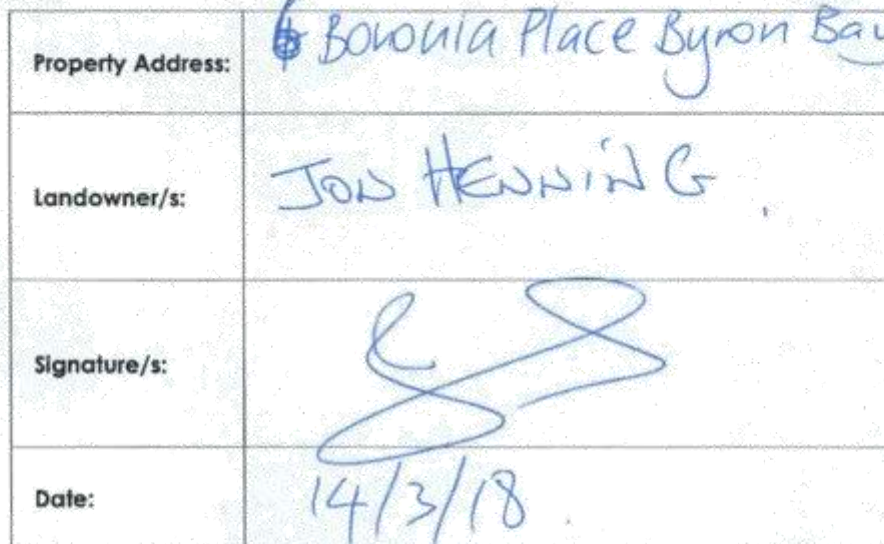 Property Address: 6 Boronia Place Byron Bay
Landowner/s: JON HENNING
Signature/s:
Date: 14/3/18